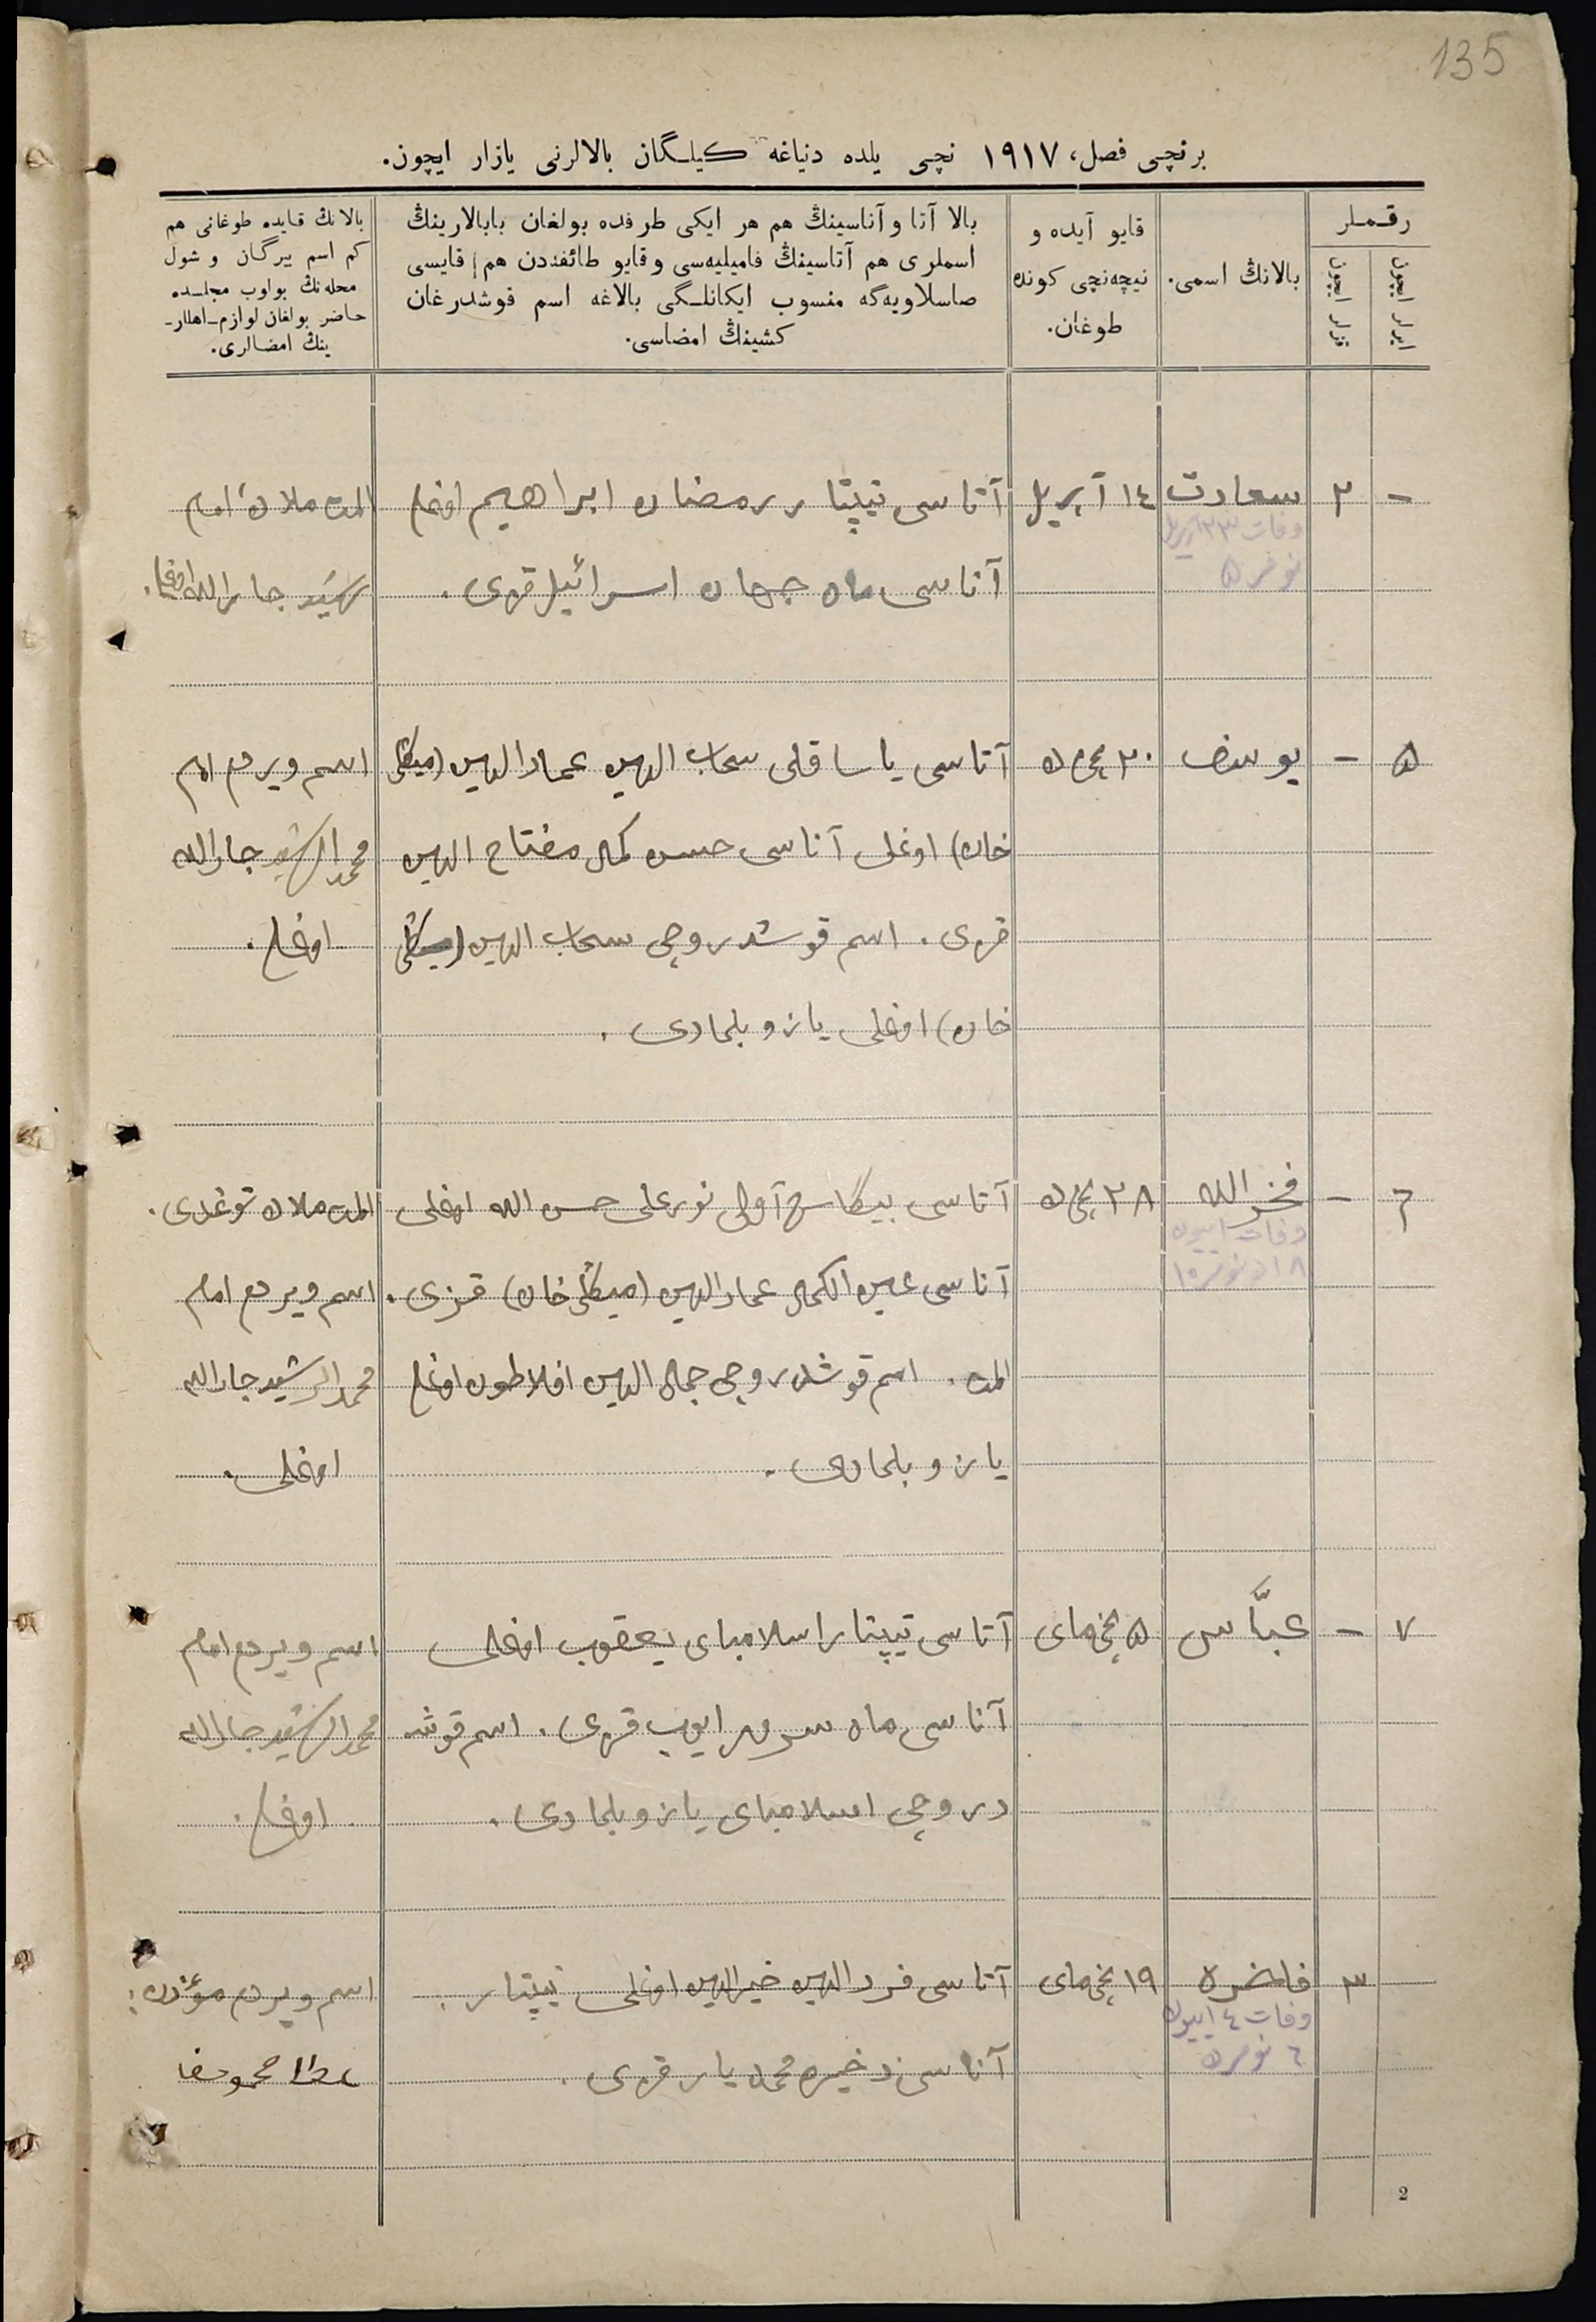 135
برنچی فصل، ١٩١٧ نچی یلده دنیاغه کیلـگان بالالرنی یازار ایچون.
رقـمـلر
ایرلر ایچون
قزلر ایچون
بالانڭ اسمی.
قایو آیده و
نیچه‌نچی کونده
طوغان.
بالا آتا و آناسینڭ هم هر ایکی طرفده بولغان بابالارینڭ
اسملری هم آتاسینڭ فامیلیه‌سی و قایو طائفه‌دن هم قایسی
صاسلاویه‌گه منسوب ایکانلـگی بالاغه اسم قوشدرغان
کشینڭ امضاسی.
بالانڭ قایده طوغانی هم
کم اسم بیرگان و شول
محله‌نڭ بولوب مجلـسده
حاضر بولغان لوازم-اهللر-
ینڭ امضـالری.
-
٢
سعادت
وفات ٢٣ آپریل
نومر ٥
١٤ آپریل
آتاسی تیپتار رمضان ابراهیم اوغلی
آناسی ماه جهان اسرائیل قزی.
امام
رشید جارالله اوغلی.
٥
-
یوسف
٢٠ نچی
آتاسی یاساقلی سحاب الدین عماد الدین (میڭلی
خان) اوغلی آناسی حسن کمال مفتاح الدین
قزی. اسم قوشدروچی سحاب الدین (میڭلی
خان) اوغلی یازو بلمادی.
اسم ویردم امام
محمد الرشید جارالله
اوغلی.
٦
-
فخر الله
وفات
٢٨ نچی
آتاسی نورعلی حسن الله اوغلی
آناسی عین الکمال عماد الدین (میڭلی خان) قزی.
اسم قوشدروچی جمال الدین افلاطون اوغلی
یازو بلمادی.
توغدی.
اسم ویردم امام
محمد الرشید جارالله
اوغلی.
٧
-
عبّاس
٥ نچی مای
آتاسی تیپتار اسلامبای یعقوب اوغلی
آناسی ماه سرور ایوب قزی. اسم قوشـ
دروچی اسلامبای یازو بلمادی.
اسم ویردم امام
محمد الرشید جارالله
اوغلی.
٣
فاخره
وفات ٤
٦ نومره
١٩ نچی مای
آتاسی فرد الدین خیر الدین اوغلی تیپتار.
آناسی ذخیره محمد یار قزی.
اسم ویردم مؤذن:
2